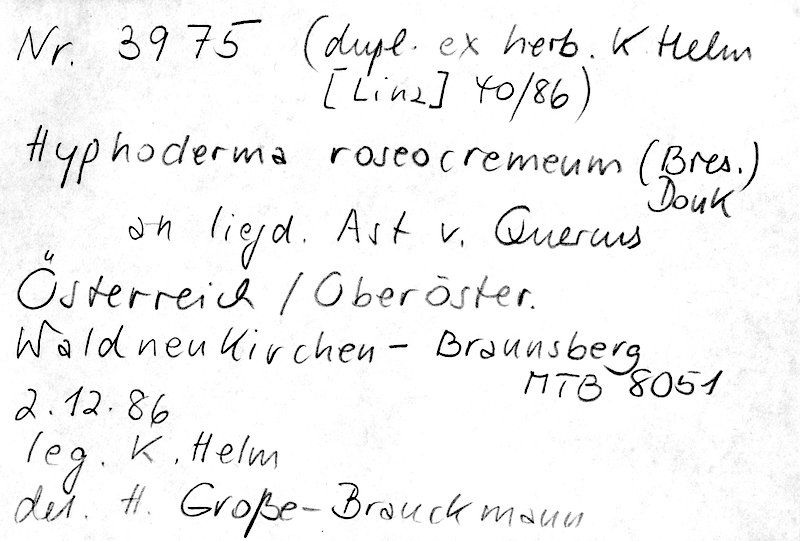 Nr. 3975 (dupl. ex herb. K. Helm
[Linz] 40/86)
Hyphoderma roseocremeum (Bres.)
Donk
an liegd. Ast v. Quercus
Österreich / Oberöster.
Waldneukirchen - Braunsberg
MTB 8051
2.12.86
leg. K. Helm
det. H. Große-Brauckmann